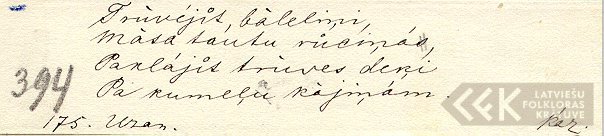 Trūvējšt, bāleliņi,
Māsa tautu rūciņās,
Paklājšt trūves deķi
Pa kumeļu kājiņām.
394
175. Uzan.
kāz.
LATVIEŠU
FOLKLORAS
KRĀTUVE